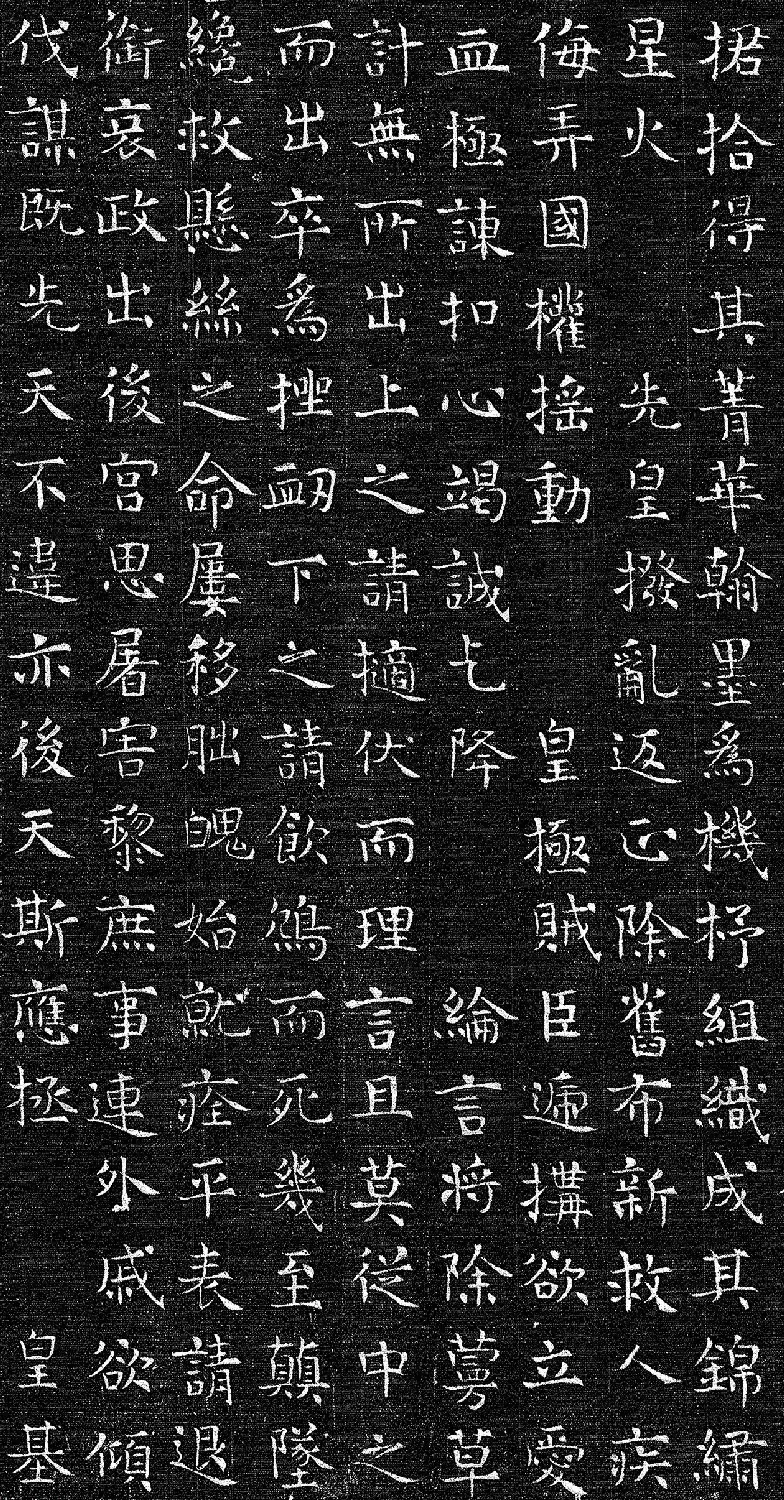 捃拾得其菁華翰墨爲機杼組織成其錦繡
星火 先皇撥亂返正除舊布新救人疾
侮弄國權揺動 皇極賊臣遞搆欲立愛
血極諫扣心竭誠乞降 綸言將除蔓草
計無所出上之請擿伏而理言且莫從中之
而出卒爲挫衂下之請飲鴆而死幾至顛墜
纔救懸絲之命屢移朏魄始就痊平表請退
銜哀政出後宮思屠害黎庶事連外戚欲傾
伐謀既先天不違亦後天斯應拯 皇基